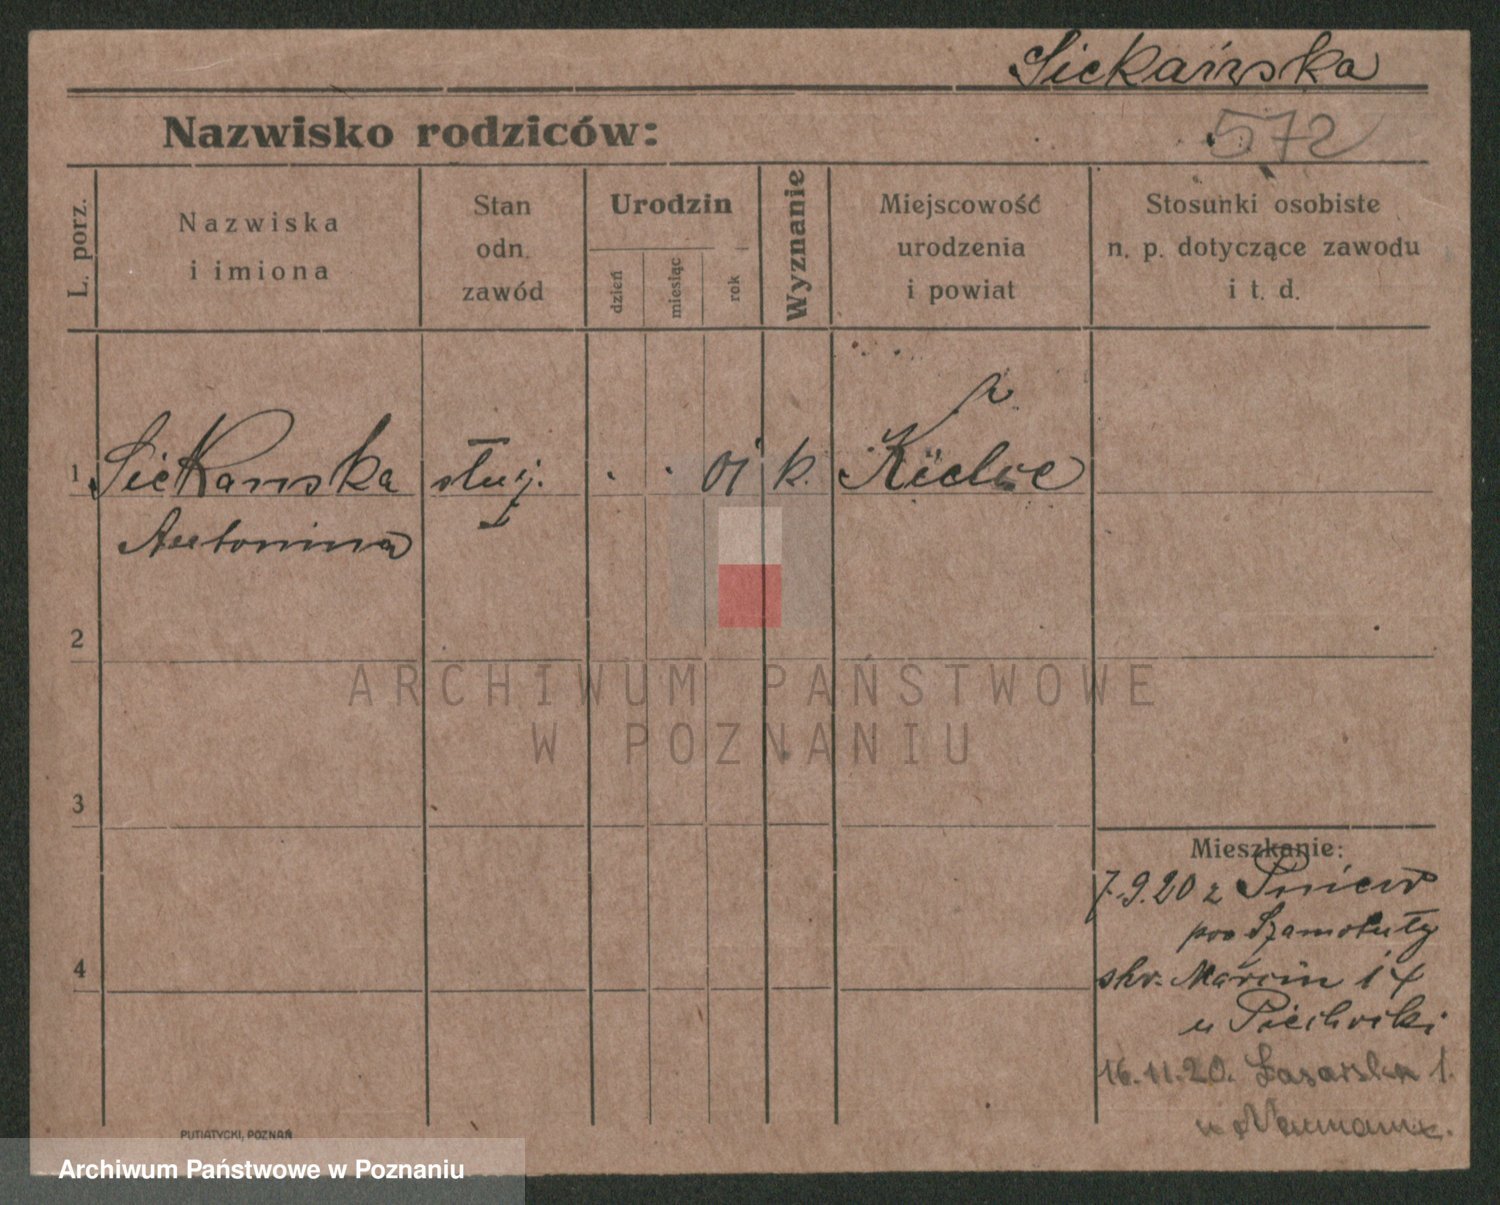 Siekańska
572
Nazwisko rodziców:
L. porz.
Nazwiska
i imiona
Stan
odn.
zawód
Urodzin
dzień
miesiąc
rok
Wyznanie
Miejscowość
urodzenia
i powiat
Stosunki osobiste
n. p. dotyczące zawodu
i t. d.
1 Siekanska służ. . . 01 k. Kielce
Antonina
2
3
4
Mieszkanie:
7.9.20 z Pniew
pow Szamotuły
skr. Marcin 14
u Piechocki
16.11.20. Łazarska 1.
u Neumann.
PUTIATYCKI, POZNAŃ
ARCHIWUM PAŃSTWOWE
W POZNANIU
Archiwum Państwowe w Poznaniu